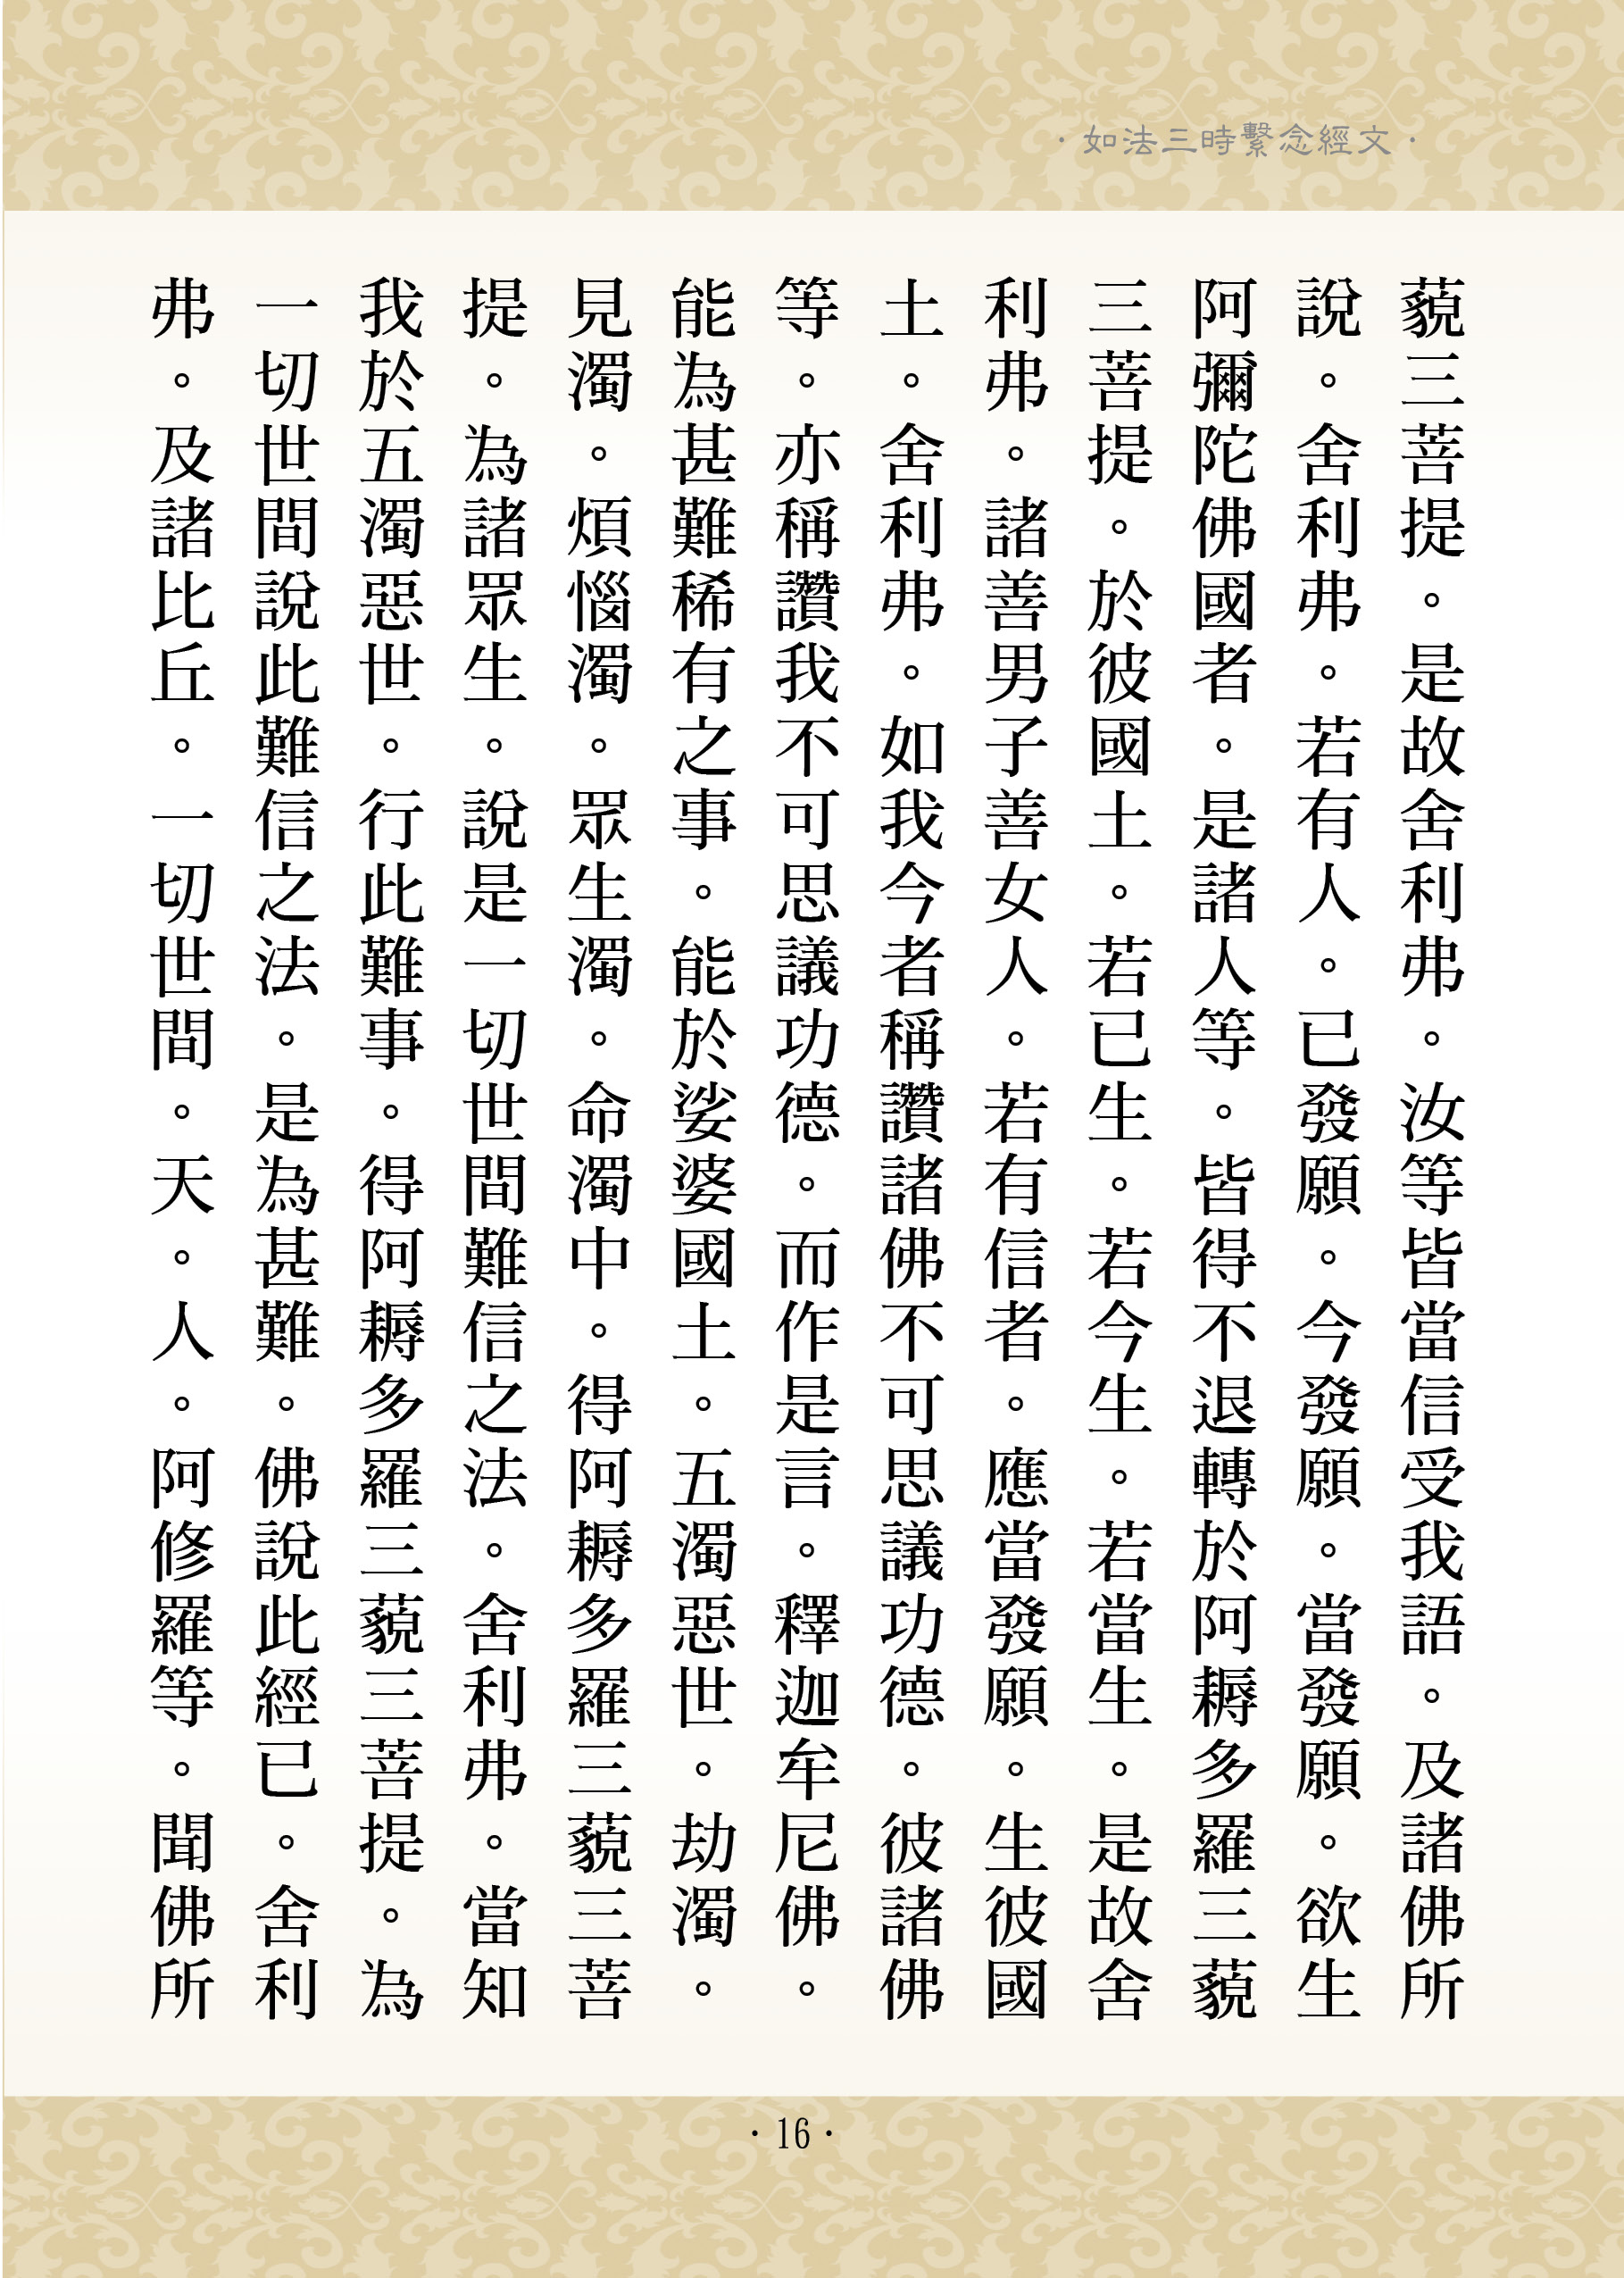 ·如法三時繫念經文·
藐三菩提。是故舍利弗。汝等皆當信受我語。及諸佛所
說。舍利弗。若有人。已發願。今發願。當發願。欲生
阿彌陀佛國者。是諸人等。皆得不退轉於阿耨多羅三藐
三菩提。於彼國土。若已生。若今生。若當生。是故舍
利弗。諸善男子善女人。若有信者。應當發願。生彼國
土。舍利弗。如我今者稱讚諸佛不可思議功德。彼諸佛
等。亦稱讚我不可思議功德。而作是言。釋迦牟尼佛。
能為甚難稀有之事。能於娑婆國土。五濁惡世。劫濁。
見濁。煩惱濁。眾生濁。命濁中。得阿耨多羅三藐三菩
提。為諸眾生。說是一切世間難信之法。舍利弗。當知
我於五濁惡世。行此難事。得阿耨多羅三藐三菩提。為
一切世間說此難信之法。是為甚難。佛說此經已。舍利
弗。及諸比丘。一切世間。天。人。阿修羅等。聞佛所
·16·